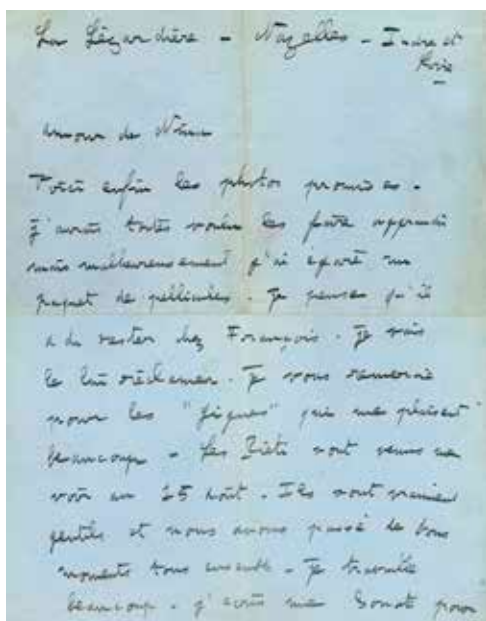 La Lézardière - Nazelles - Indre et
Loire
Amour de Nina
Voici enfin les photos promises.
J'aurais toutes voulu les faire agrandir
mais malheureusement j'ai égaré un
paquet de pellicules. Je pense qu'il
a du rester chez François. Je vais
le lui réclamer. Je vous remercie
pour les "figues" qui me plaisent
beaucoup - Les sont venus me
voir au 15 Août. Ils sont vraiment
gentils et nous avons passé de bons
moments tous ensemble. Je travaille
beaucoup. j'écris une Sonate pour